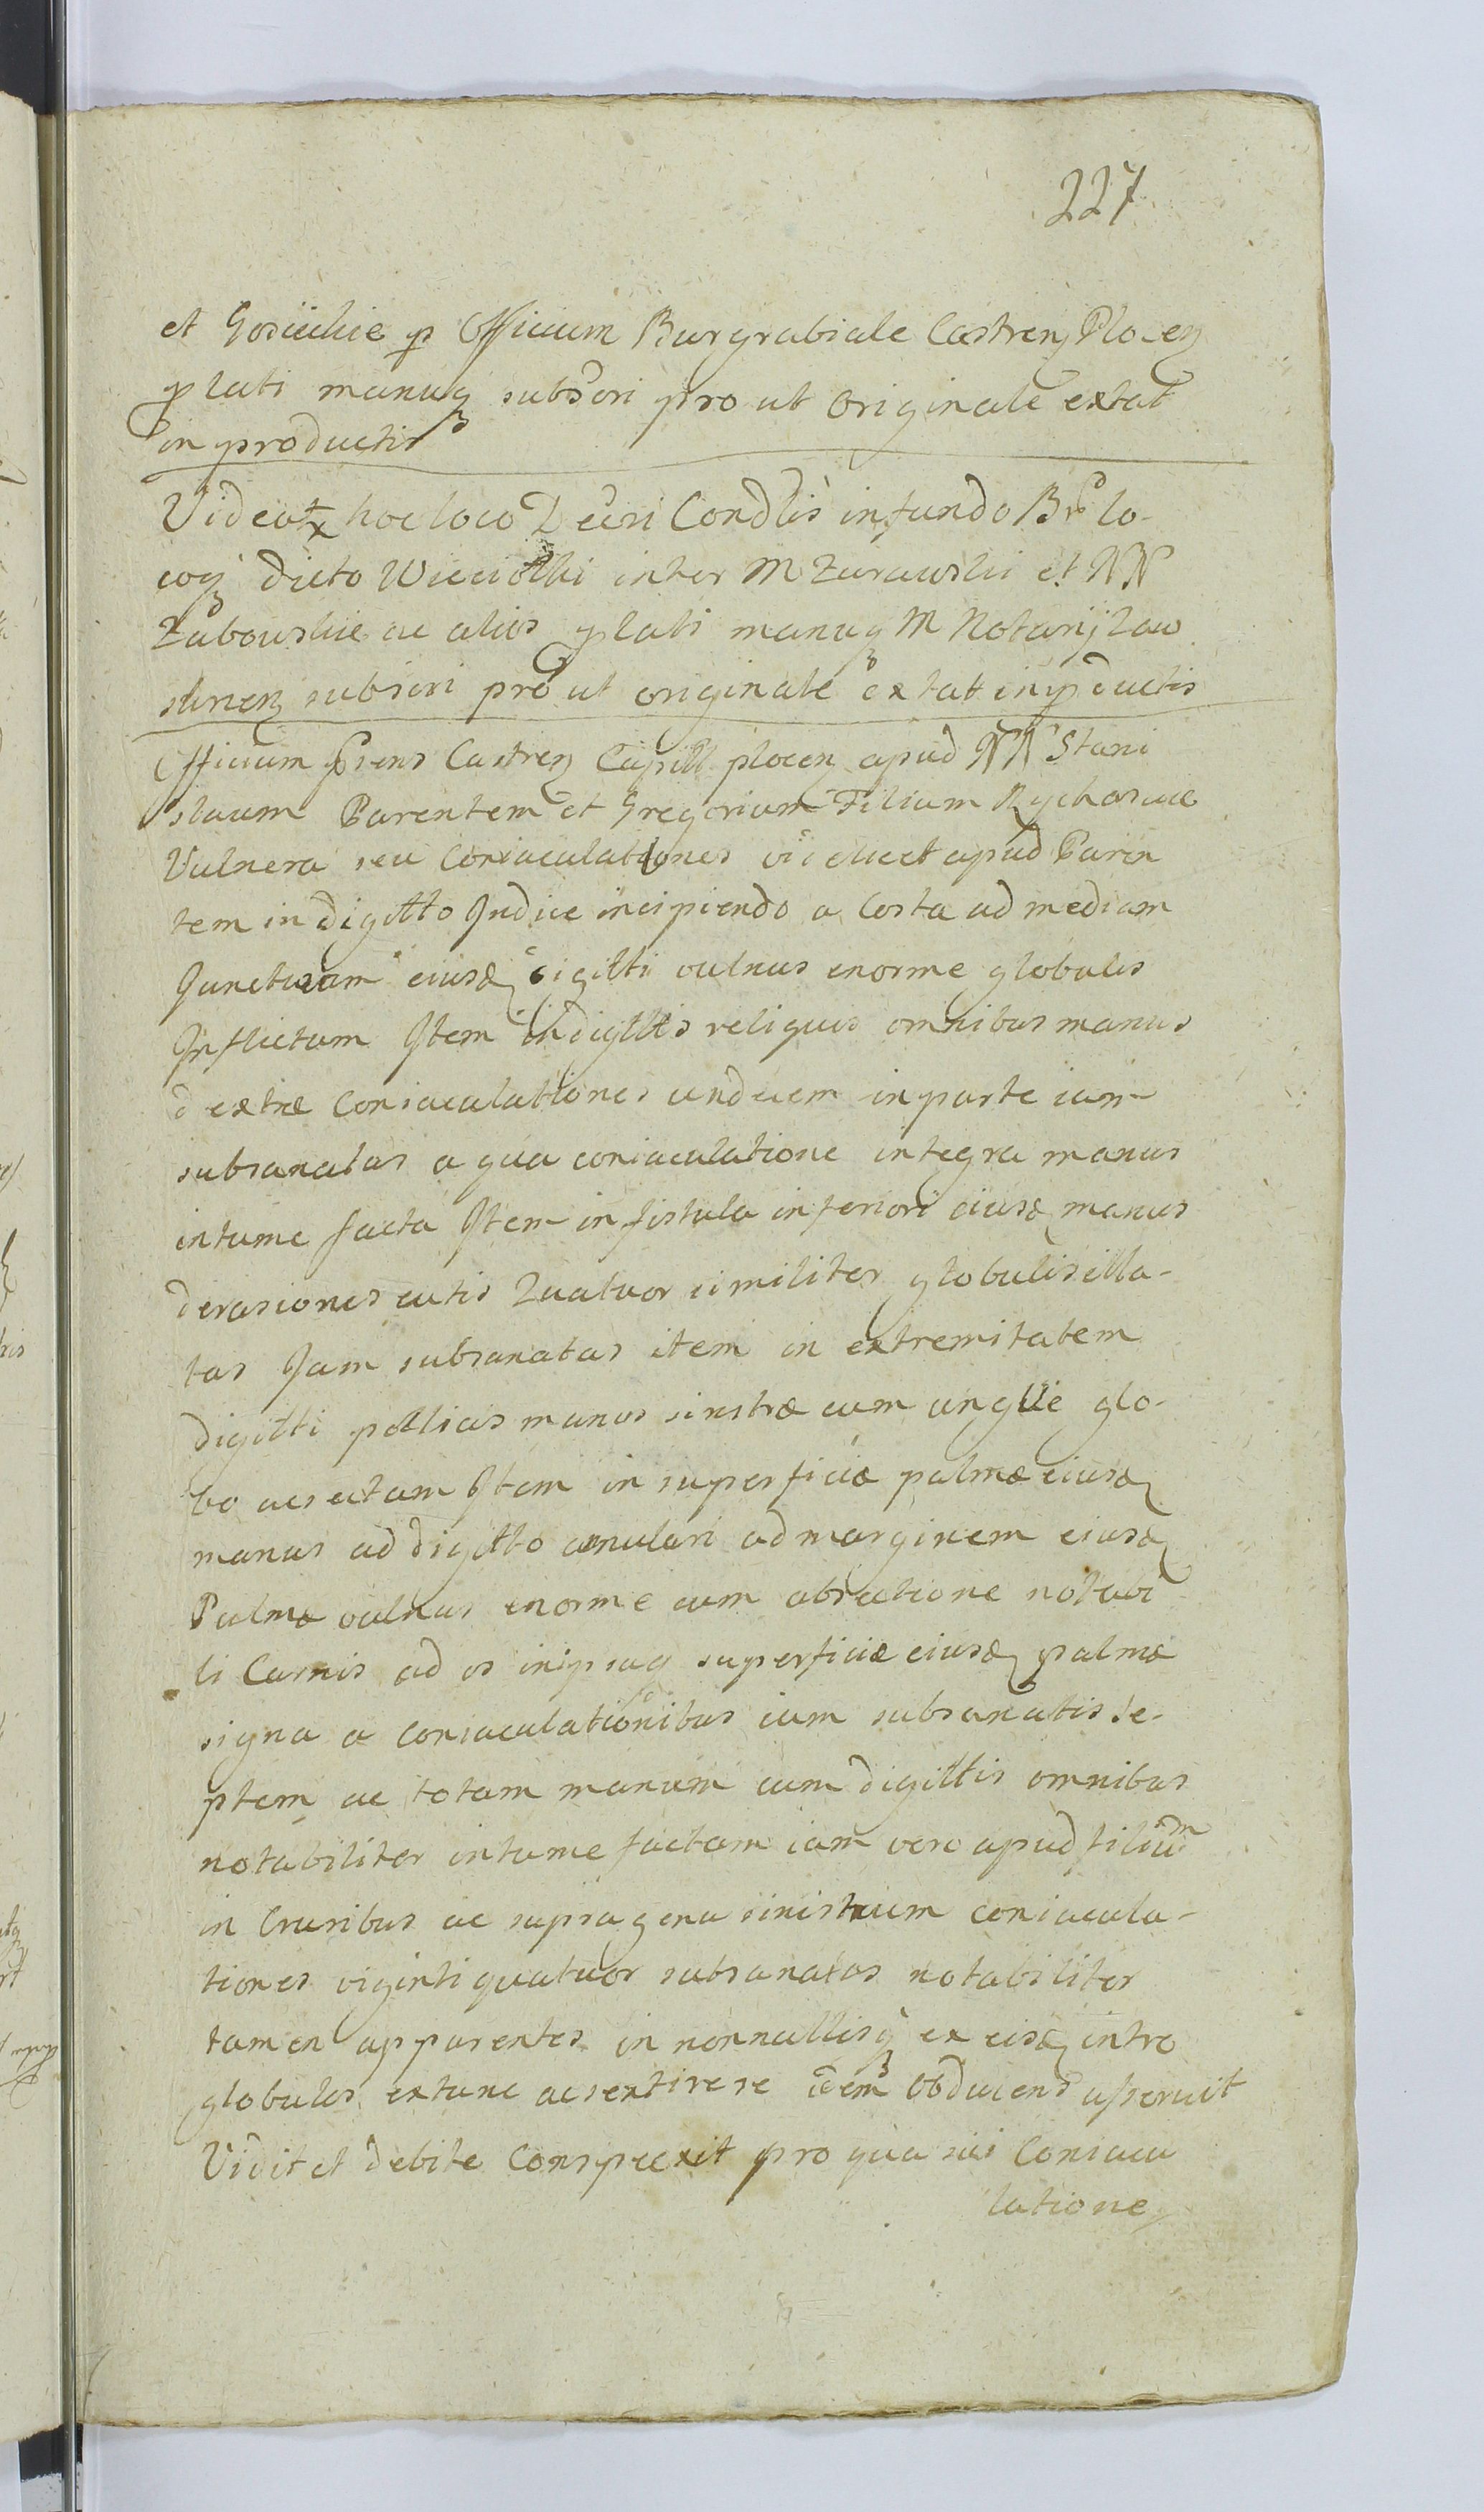 227
et Gosickie p Officium Burgrabiale Castren Plocen
plati manuq subscri pro ut Originale extat
in productis
Videatr hoc loco Decri Condlis in fundo Br lo-
coq dicto Wieciotki inter M Zurawski et NN
Zabowskie ac alios plati manuq M Notarij Zaw
skrnen subscri pro ut originale extat in pductis
Officium psens Castren Capitl plocen apud NN Stani
slaum Parentem et Gregorium Filium Rychorscie
Vulnera seu Coniaculationes videlicet apud Paren
tem in digitto Indice incipiendo a Costa ad mediam
Juncturam eiusd digitti vulnus enorme globulis
Inflictum Item in digittis reliquis omnibus manus
dextræ coniaculationes undecim in parte iam
subsanatas a qua coniaculatione integra manus
intumefacta Item in fistula inferiori eiusd manus
derasiones cutis Quatuor similiter globulis illa-
tas Jam subsanatas item in extremitatem
digitti pollicis manus sinstræ cum ungue glo-
bo resectam Item in superficie palmæ eiusd
manus ad digitto annulari ad marginem eiusd
Palmæ vulnus enorme cum absectione notabi
li Carnis ad os in ipsaq superficie eiusd palmæ
signa a coniaculationibus iam subsanatis Se-
ptem ac totam manum cum digittis omnibus
notabiliter intumefactam iam vero apud filium
in Cruribus ac supra genu sinistrum coniacula-
tiones viginti quatuor subsanatas notabiliter
tamen apparentes in nonnullisq ex eisd intro
globulos extunc ac sentire se idem Obducens asseruit
Vidit et debite Conspeexit pro qua sui Coniacu
latione